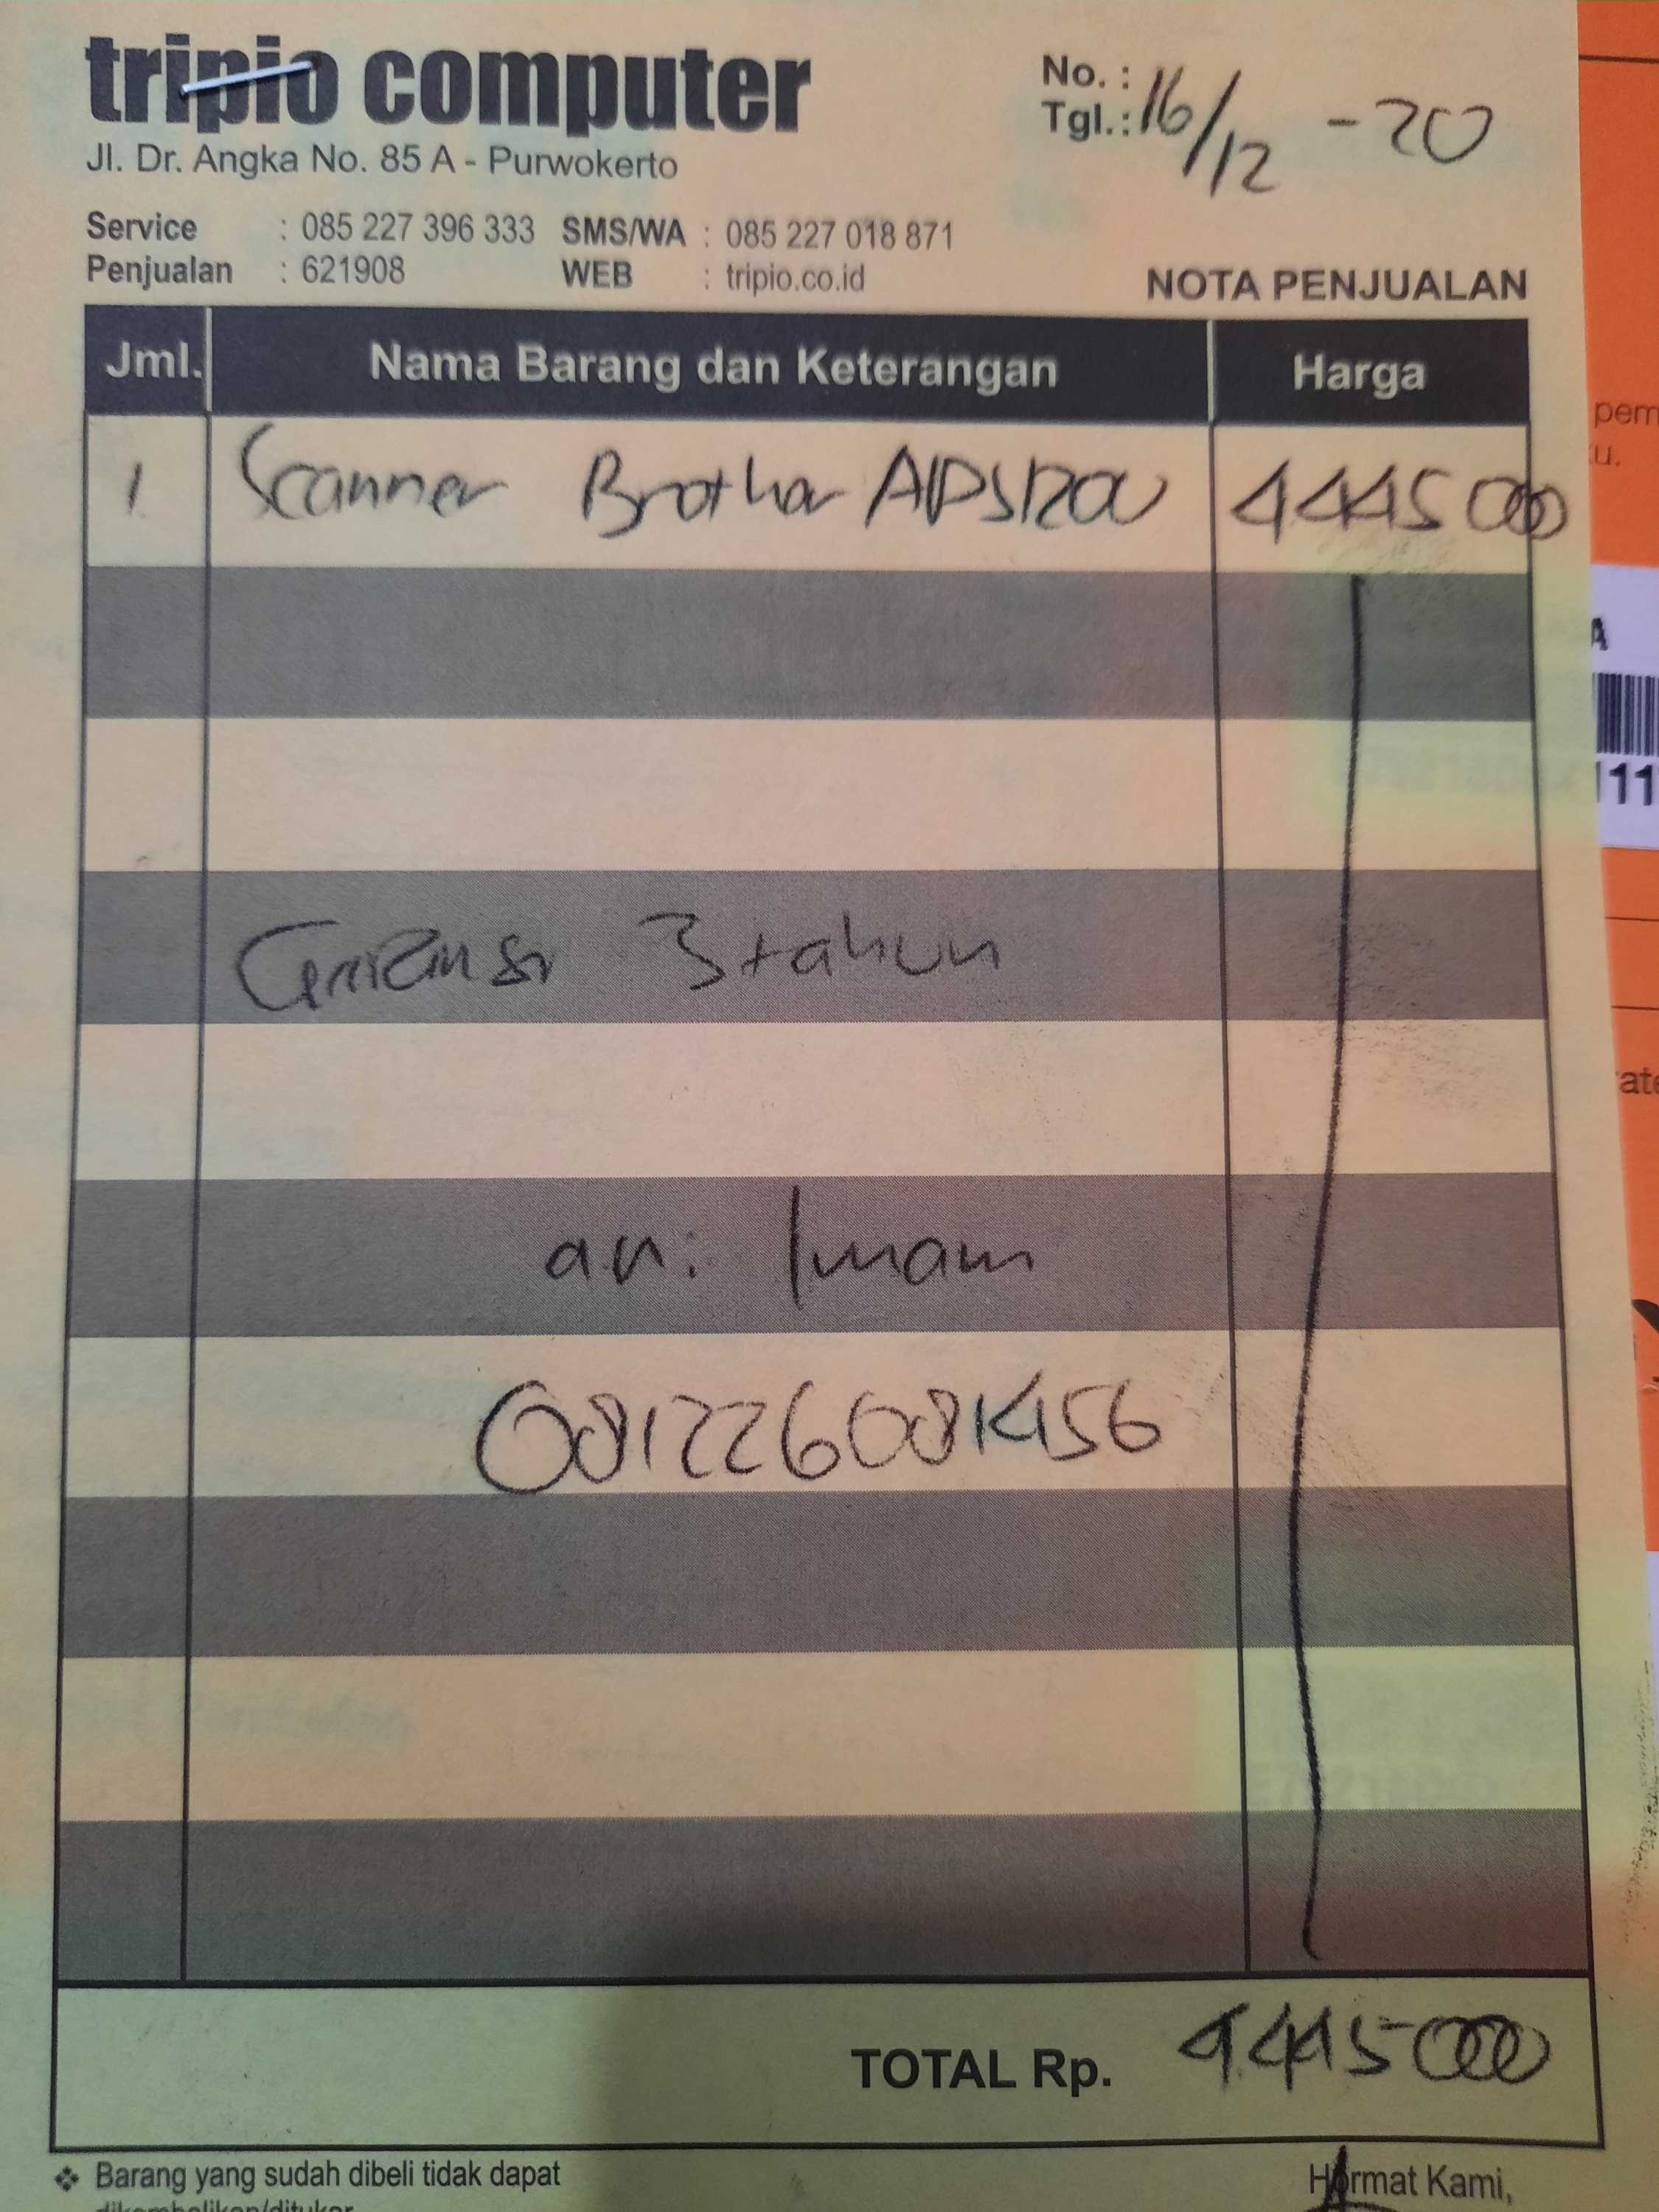 tripio computer
Jl. Dr. Angka No. 85 A - Purwokerto
No. :
Tgl.: 16/12 - 20
Service : 085 227 396 333 SMS/WA : 085 227 018 871
Penjualan : 621908 WEB : tripio.co.id
NOTA PENJUALAN
Jml. Nama Barang dan Keterangan Harga
1 Scanner Brother ADS1200 4445000
Garansi 3 tahun
an: Imam
081226081456
TOTAL Rp. 4.445000
❖ Barang yang sudah dibeli tidak dapat
dikembalikan/ditukar
Hormat Kami,
pem
u.
A
111
ate